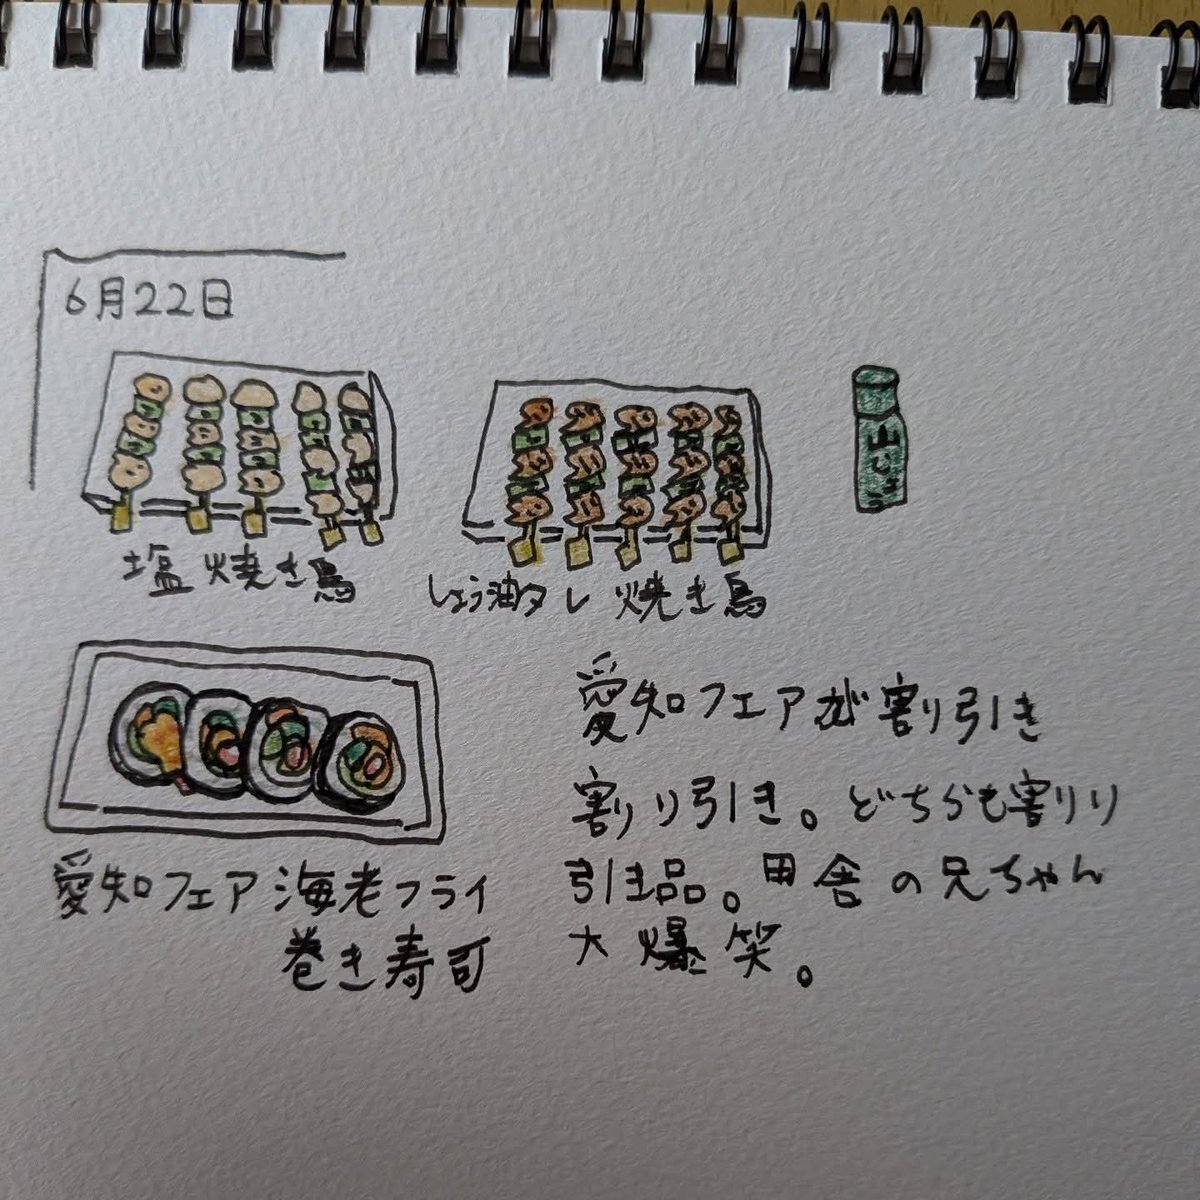 6月22日
塩焼き鳥
しょう油タレ焼き鳥
愛知フェア海老フライ
巻き寿司
愛知フェアが割り引き
割り引き。どちらも割り
引き品。田舎の兄ちゃん
大爆笑。